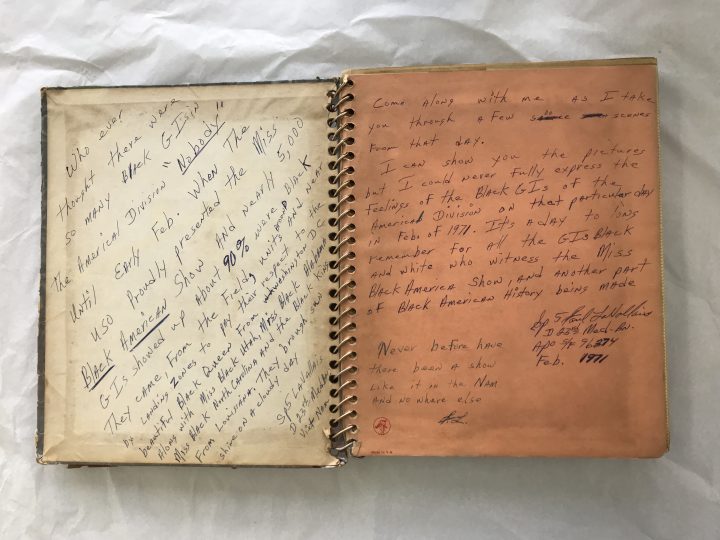 Who ever
thought there were
so many Black GIs in
The Americal Division "Nobody"
Until Early Feb. When The
USO Proudly presented the Miss
Black American Show and nearly 5,000
GIs showed up about 90% were Black
They came from the Fields, units around and near
by Landing Zones to pay their respect to the
beautiful Black Queen from Washington D.C.
Along with Miss Black Utah, Miss Black Alabama
Miss Black North Carolina and the Black
From Louisiana. They brought sun
shine on a cloudy day
Sp5
Viet Nam
Come Along with me as I take
you through a few scenes
From that day.
I can show you the pictures
but I could never fully express the
Feelings of the Black GIs of the
Americal Division on that particular day
in Feb. of 1971. It's a day to long
remember for all the GIs Black
And white who witness the Miss
Black America Show, and another part
of Black American History being made
Sp 5 Paul LaVallius
D 23rd Med. Bn.
Apo SF 96374
Feb. 1971
Never before have
there been a show
Like it in the Nam
And no where else